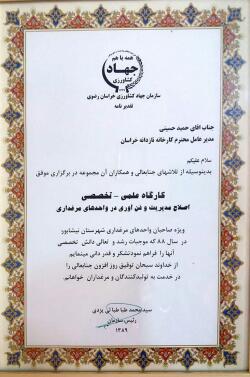 همه با هم
جهاد
کشاورزی
سازمان جهاد کشاورزی خراسان رضوی
تقدیر نامه
جناب اقای حمید حسینی
مدیر عامل محترم کارخانه نازدانه خراسان
سلام علیکم
بدینوسیله از تلاشهای جنابعالی و همکاران آن مجموعه در برگزاری موفق
کارگاه علمی - تخصصی
اصلاح مدیریت و فن آوری در واحدهای مرغداری
ویژه صاحبان واحدهای مرغداری شهرستان نیشابور
در سال ۸۸ که موجبات رشد و تعالی دانش تخصصی
آنها را فراهم نمود تشکر و قدر دانی مینمایم
از خداوند سبحان توفیق روز افزون جنابعالی را
در خدمت به تولیدکنندگان و مرغداران خواهانم.
سید محمد طبا طبا ئی یزدی
رئیس سازمان
۱۳۸۹